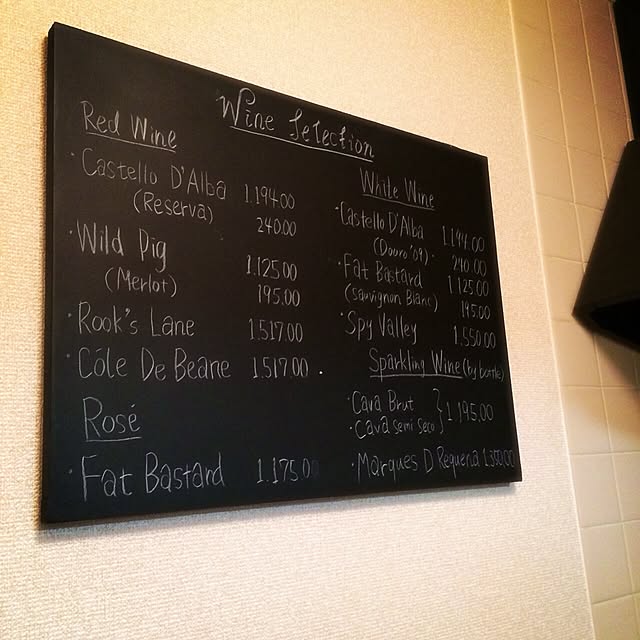 Wine Selection
Red Wine
· Castello D'Alba 1.194.00
(Reserva) 240.00
· Wild Pig 1.125.00
(Merlot) 195.00
· Rook's Lane 1.517.00
· Côle De Beane 1.517.00 .
Rosé
· Fat Bastard 1.175.00
White Wine
· Castello D'Alba 1.194.00
(Douro '09) · 240.00
· Fat Bastard 1.125.00
(sauvignon Blanc) 195.00
· Spy Valley 1.550.00
Sparkling Wine (by bottle)
· Cava Brut
· Cava semi seco } 1.195.00
· Marques D Requena 1.350.00